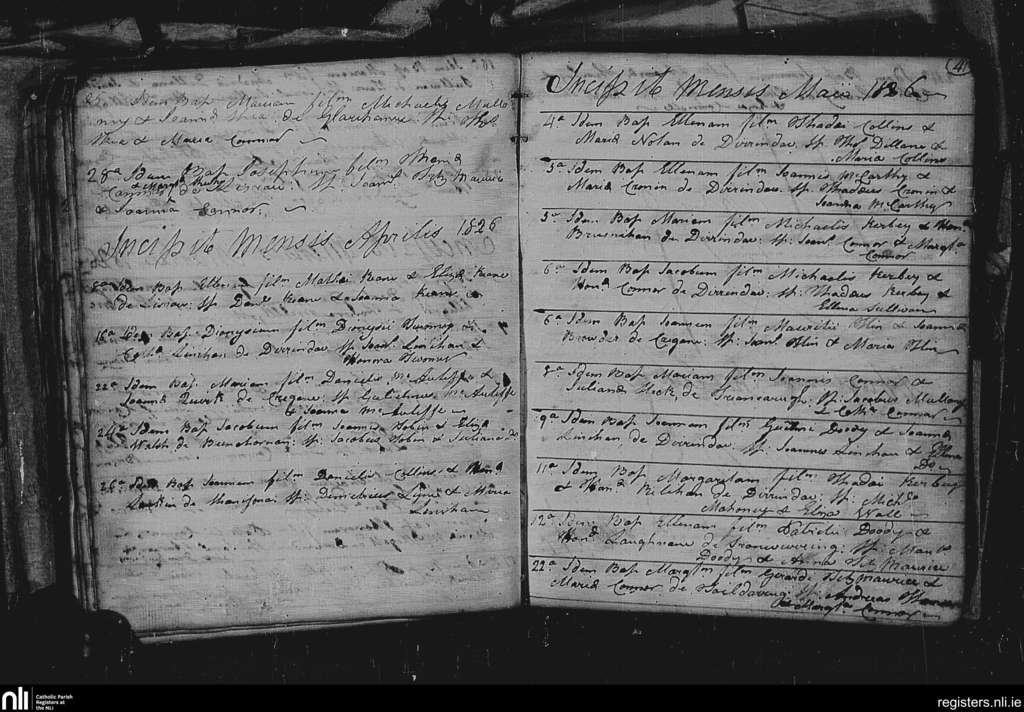 Idem Bap Mariam film Michaelis Mullo
ny & Joanna Shea de Glarihanne Sp: Thos
Shea & Maria Connor
28a Idem Bap Josephiny film Thomæ
Connor & Marga de Sp: Joans Fitz Maurice
& Joanna Connor
Incipit Mensis Aprilis 1826
Idem Bap Ellenam film Mathæi Keane & Eliza Keane
de Lisroe Sp Danl Keane & Joanna Keane
16a Idem Bap Dionysium film Dionysii Twomey &
Cathna Linehan de Dirrindav Sp Joans Linehan &
Honora Twomey
22a Idem Bap Mariam film Danielis McAuliffe &
Joanna Quirk de Cregane Sp Gulielmus McAuliffe
& Joanna McAuliffe
24a Idem Bap Jacobum film Joannis Tobin & Eliza
Walsh de Sp: Jacobus Tobin & Juliana do
26a Idem Bap Joannem film Danielis Collins &
de Sp: Lyne & Maria
Linehan
41
Incipit Mensis Maii 1826
4a Idem Bap Ellenam film Thadæi Collins &
Maria Nolan de Dirrindav Sp Thos Dillane &
Maria Collins
5a Idem Bap Ellenam film Joannis McCarthy &
Maria Cronin de Dirrindav Sp Thaddeus Cronin &
Joanna McCarthy
5a Idem Bap Mariam film Michaelis Kerbey & Hona
Brusnihan de Dirrindav: Sp: Joans Connor & Margta
Connor
6a Idem Bap Jacobum film Michaelis Kerbey &
Hona Connor de Dirrindav: Sp: Thaddeus Kerbey &
Ellena Sullivan
6a Idem Bap Joannem film Mauritii Flin & Joanna
Browder de Cregane: Sp: Joans Flin & Maria Flin
8a Idem Bap Mariam film Joannis Connor &
Juliana de Sp: Jacobus Mullony
& Cathe Connor
9a Idem Bap Joannam film Doody & Joanna
Linehan de Dirrindav Sp: Joannes Linehan & Ellena
Do
11a Idem Bap Margaretam film Thadæi Kerbey
& Hona Relihan de Dirrindav: Sp: Michs
Mahoney & Eliza Wall
12a Idem Bap Ellenam film Patricii Doody &
Hona Laughnane de Sp: Maus
Doody & Anna Fitz Maurice
22a Idem Bap Margtm film Gerardi Fitzmaurice &
Maria Connor de Sp: Andreas
& Margta Connor
nli
Catholic Parish
Registers at
the NLI
registers.nli.ie